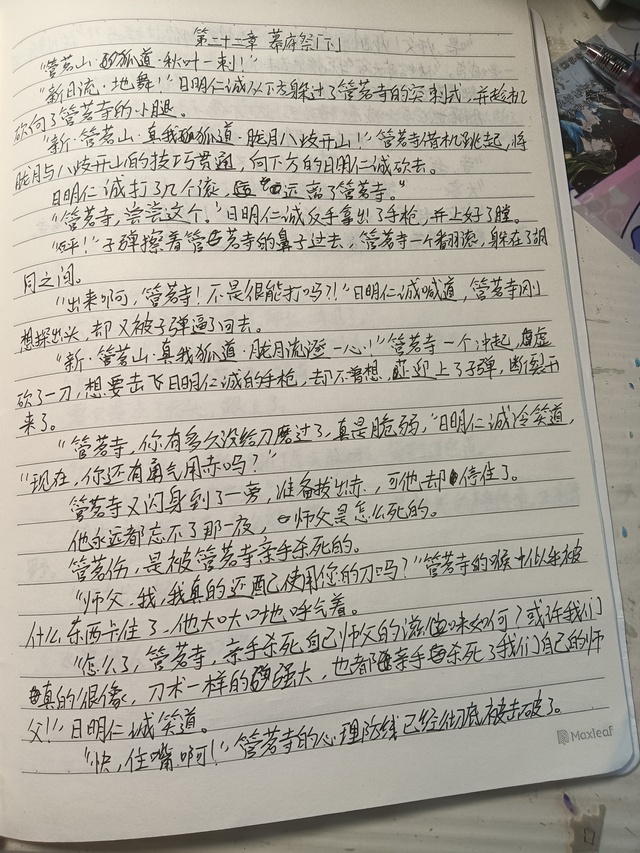 第二十二章 幕府祭「下」
“管茗山·孤狐道·秋叶一刺！”
“新日流·地舞！”日明仁诚从下方躲过了管茗寺的突刺式，并趁机
砍向了管茗寺的小腿。
“新·管茗山·真我孤狐道·胧月八歧开山！”管茗寺借机跳起，将
胧月与八歧开山的技巧贯通，向下方的日明仁诚砍去。
日明仁诚打了几个滚，远离了管茗寺。“
“管茗寺，尝尝这个。”日明仁诚反手拿出了手枪，并上好了膛。
“呯！”子弹擦着管茗寺的鼻子过去，管茗寺一个翻滚，躲在了胡
同之间。
“出来啊，管茗寺！不是很能打吗？！”日明仁诚喊道，管茗寺刚
想探出头，却又被子弹逼了回去。
“新·管茗山·真我狐道·胧月流逐一心！”管茗寺一个冲起，虚
砍了一刀，想要击飞日明仁诚的手枪，却不曾想，迎上了子弹，断裂开
来了。
“管茗寺，你有多久没给刀磨过了，真是脆弱，”日明仁诚冷笑道，
“现在，你还有勇气用赤吗？”
管茗寺又闪身到了一旁，准备拔出赤，可他却停住了。
他永远都忘不了那一夜，师父是怎么死的。
管茗伤，是被管茗寺亲手杀死的。
“师父，我，我真的还配使用您的刀吗？”管茗寺的喉中似乎被
什么东西卡住了，他大口大口地呼气着。
“怎么了，管茗寺，亲手杀死自己师父的滋味如何？或许我们
真的很像，刀术一样的强大，也都亲手杀死了我们自己的师
父！”日明仁诚笑道。
“快，住嘴啊！”管茗寺的心理防线已经彻底被击破了。
Maxleaf